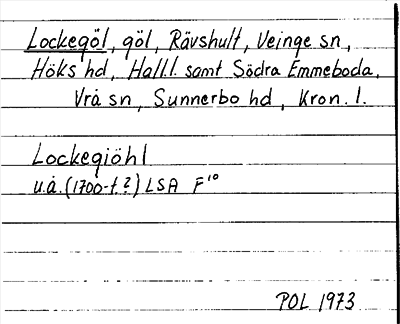 Lockegöl, göl, Rävshult, Veinge sn,
Höks hd, Hall.l. samt Södra Emmeboda,
Vrå sn, Sunnerbo hd, Kron. l.
Lockegiöhl
u.å. (1700-t.?) LSA F¹⁰
POL 1973